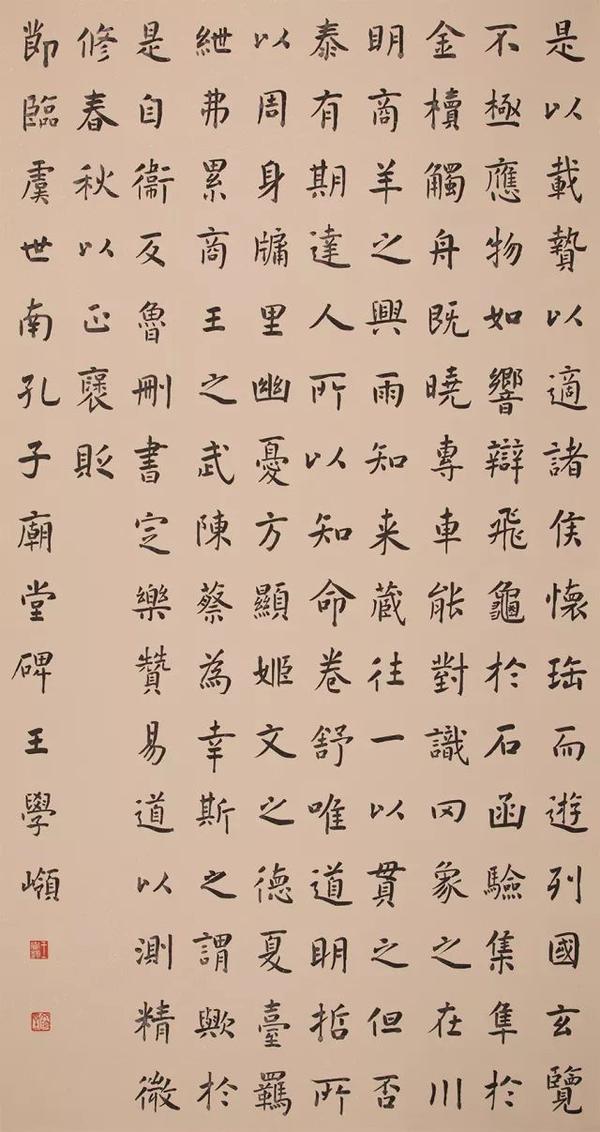 是以載贄以適諸侯懷珤而遊列國玄覽
不極應物如響辯飛龜於石函驗集隼於
金櫝觸舟既曉專車能對識罔象之在川
明商羊之興雨知来藏往一以貫之但否
泰有期達人所以知命卷舒唯道明哲所
以周身牖里幽憂方顯姬文之德夏臺羈
紲弗累商王之武陳蔡為幸斯之謂歟於
是自衞反魯刪書定樂贊易道以測精微
修春秋以正襃貶
節臨虞世南孔子廟堂碑王學嶺